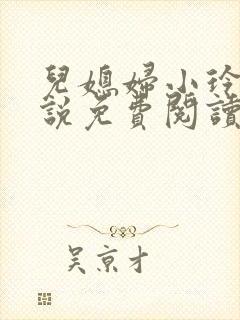 兒媳婦小玲
說免費閱讀
吴京才